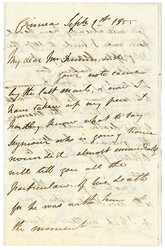 Crimea Septr 1st 1855
My dear Mr
Your note came
by the last mail, & now I
have taken up my pen I
hardly know what to say
Seymour who is going home
wounded almost immediately
will tell you all the
particulars of his death
for he was with him at
the moment